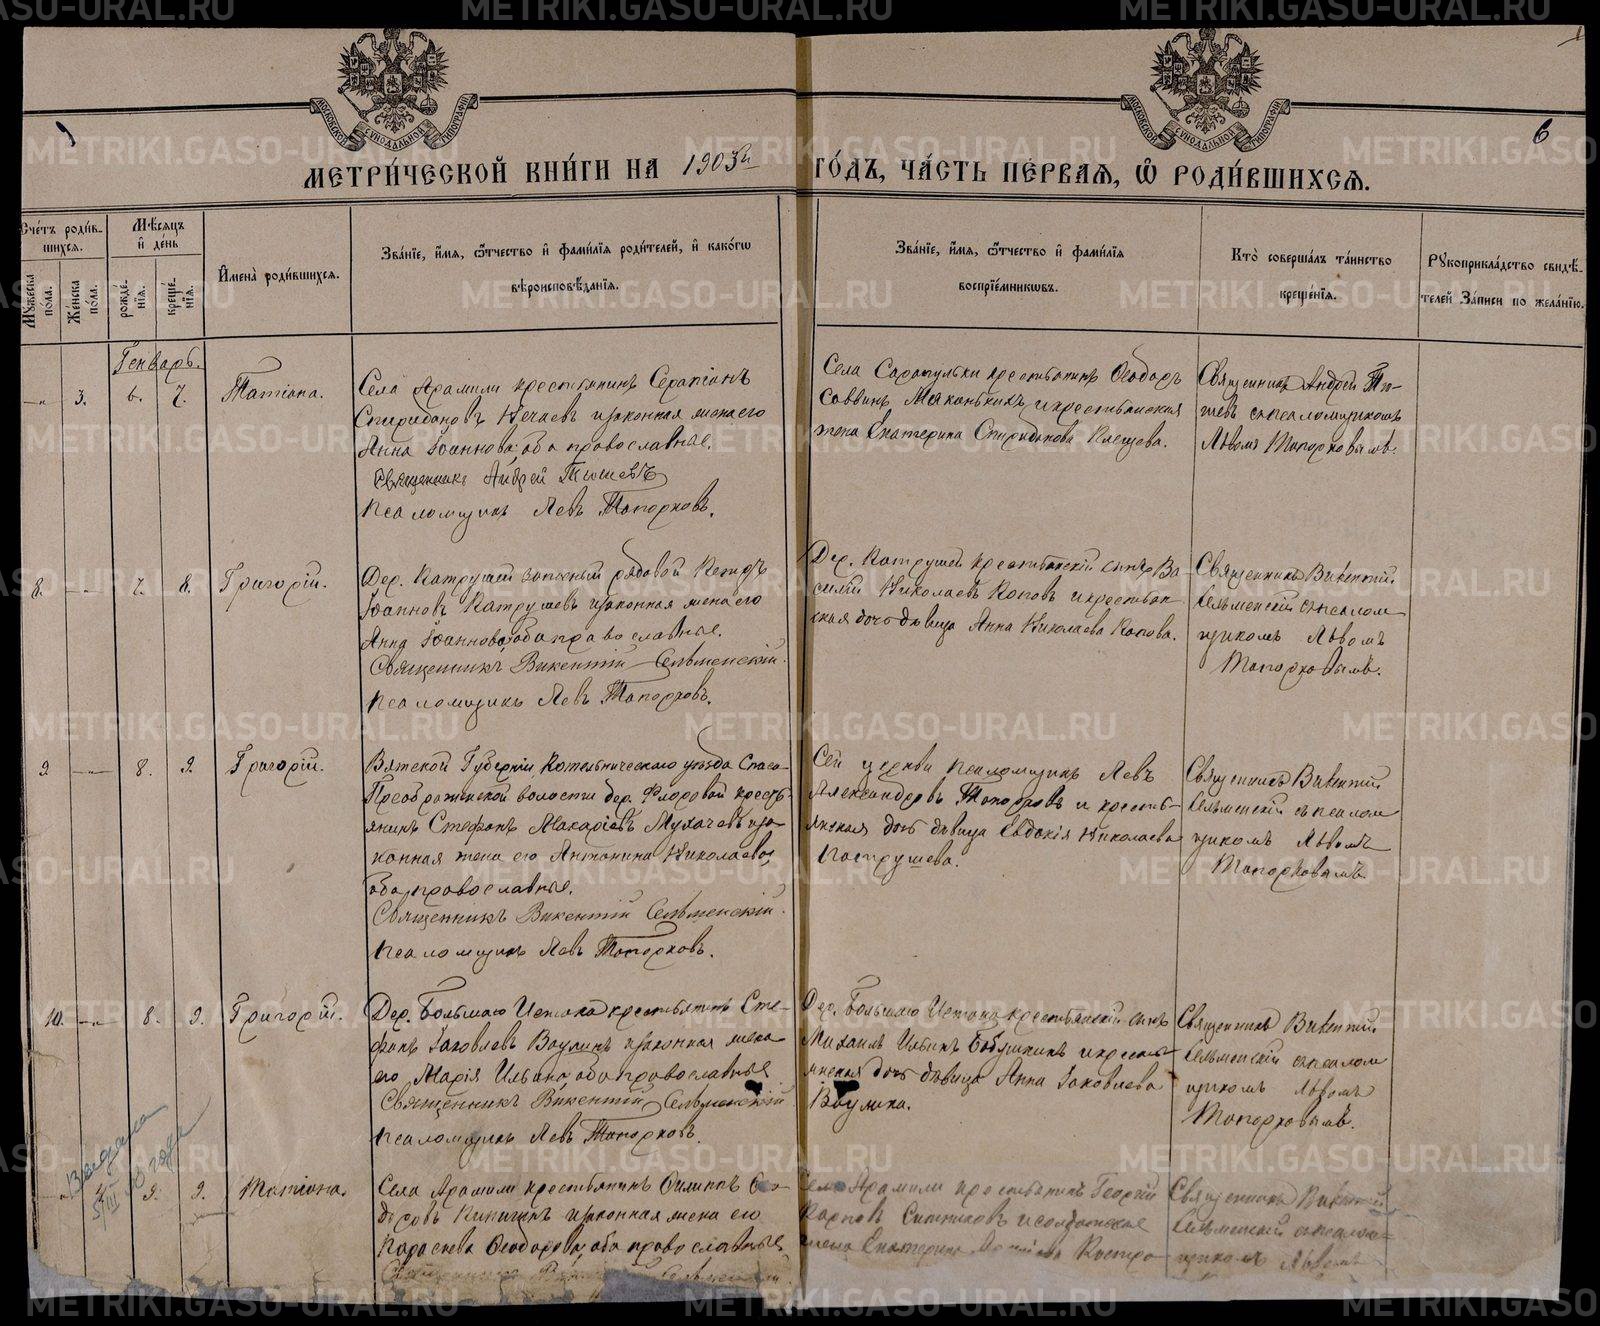 МЕТРИ́ЧЕСКОЙ КНИ́ГИ НА 1903й ГО́ДЪ, ЧА́СТЬ ПЕ́РВАЯ, Ѿ РОДИ́ВШИХСЯ.
6
Сче́тъ роди́в-
шихся.
Мꙋ́жеска по́ла.
Же́нска по́ла.
Мѣ́сяцъ и де́нь
рожде́нїя.
креще́нїя.
И́мена роди́вшихся.
Зва́нїе, и́мя, ѻ́тчество и фами́лїя роди́телей, и како́гѡ
вѣроисповѣ́данїя.
Зва́нїе, и́мя, ѻ́тчество и фами́лїя
воспрїе́мникѡвъ.
Кто̀ соверша́лъ та́инство
креще́нїя.
Рꙋкоприкла́дство свидѣ́-
телей за́писи по жела́нїю.
Генварь.
3. 6. 7. Татіана.
Села Арамили крестьянинъ Серапіонъ
Спиридоновъ Нечаевъ и законная жена его
Анна Іоаннова, оба православные.
Священникъ Андрей
Псаломщикъ Левъ Топорковъ.
Села Сарапульки крестьянинъ Ѳеодоръ
Саввинъ и крестьянская
жена Екатерина Спиридонова Клещева.
Священникъ Андрей
съ псаломщикомъ
Львомъ Топорковымъ.
8. 7. 8. Григорій.
Дер. Патрушей запасный рядовой Петръ
Іоанновъ Патрушевъ и законная жена его
Анна Іоаннова, оба православные.
Священникъ Викентій Сельменскій.
Псаломщикъ Левъ Топорковъ.
Дер. Патрушей крестьянскій сынъ Ва-
силій Николаевъ Поповъ и крестьян-
ская дочь дѣвица Анна Николаева Попова.
Священникъ Викентій
Сельменскій съ псалом
щикомъ Львомъ
Топорковымъ.
9. 8. 9. Григорій.
Вятской Губерніи Котельническаго уѣзда Спасо-
Преображенской волости дер. Флоровой кресть-
янинъ Стефанъ Макаріевъ Мухачевъ и за-
конная жена его Антонина Николаева,
оба православные.
Священникъ Викентій Сельменскій.
Псаломщикъ Левъ Топорковъ.
Сей церкви псаломщикъ Левъ
Александровъ Топорковъ и крестьян-
янская дочь дѣвица Евдокія Николаева
Патрушева.
Священникъ Викентій
Сельменскій съ псалом
щикомъ Львомъ
Топорковымъ.
10. 8. 9. Григорій.
Дер. Большаго Истока крестьянинъ Сте-
фанъ Іаковлевъ Ваулинъ и законная жена
его Марія Ильина, оба православные
Священникъ Викентій Сельменскій
Псаломщикъ Левъ Топорковъ.
Дер. Большаго Истока крестьянскій сынъ
Михаилъ Ильинъ Бабушкинъ и кресть-
янская дочь дѣвица Анна Іаковлева
Ваулина.
Священникъ Викентій
Сельменскій съ псалом
щикомъ Львомъ
Топорковымъ.
9. 9. Татіана.
Села Арамили крестьянинъ Филиппъ Ѳео-
доровъ и законная жена его
Параскева Ѳеодорова, оба православные
Села Арамили крестьянинъ Георгій
Карповъ Ситниковъ и солдатская
жена Екатерина
Священникъ Викентій
Сельменскій съ псалом-
щикомъ Львомъ
METRIKI.GASO-URAL.RU